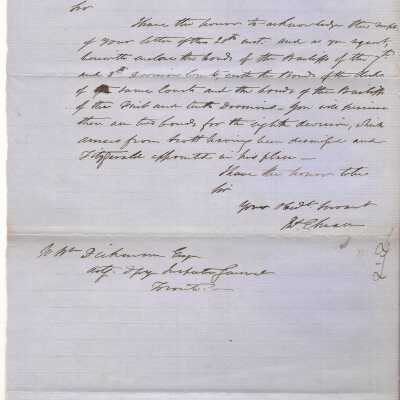 Sir
I have the honor to acknowledge the receipt
of your letter of the 20th inst. and as you request,
herewith enclose the bonds of the Bailiffs of the 7th
and 8th Division Courts with the Bonds of the Clerks
of same Courts and the bonds of the Bailiffs
of the first and tenth Divisions. You will perceive
there are two bonds for the eighth division, which
arises from Scott having been dismissed and
Fitzgerald appointed in his place —
I have the honor to be
Sir
Your Obdt Servant
W. Wm Dickinson Esq
Actg Dpy Inspector General
Toronto